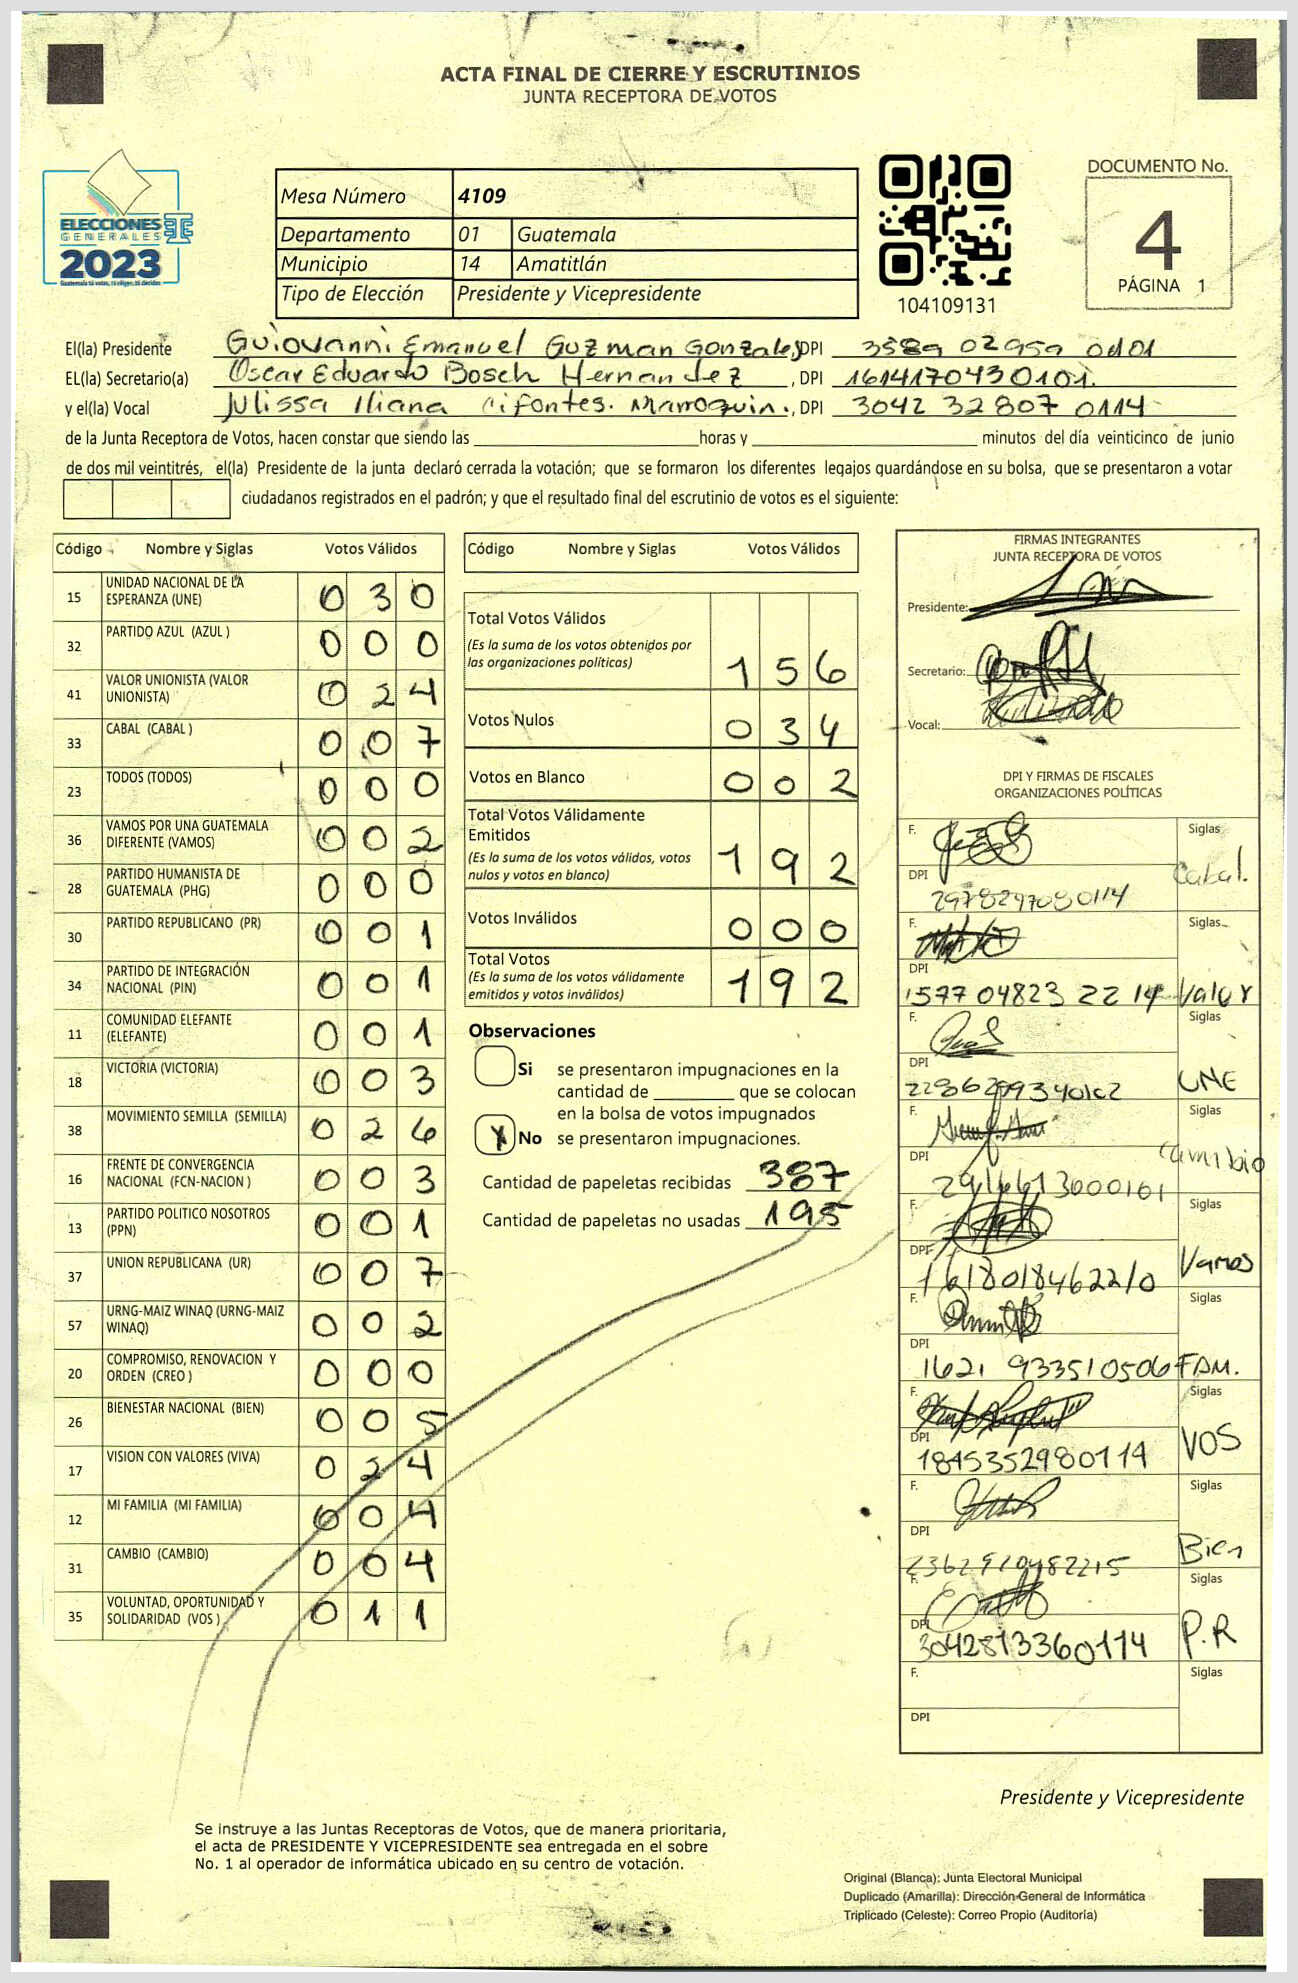 ACTA FINAL DE CIERRE Y ESCRUTINIOS
JUNTA RECEPTORA DE VOTOS
ELECCIONES
GENERALES
2023
Mesa Número 4109
Departamento 01 Guatemala
Municipio 14 Amatitlán
Tipo de Elección Presidente y Vicepresidente
104109131
DOCUMENTO No.
4
PÁGINA 1
El(la) Presidente Guiovanni Emanuel Guzman Gonzales DPI 3589 02959 0101
EL(la) Secretario(a) Oscar Eduardo Bosch Hernandez, DPI 1614170430101.
y el(la) Vocal Julissa Iliana Cifontes. Marroquin., DPI 3042 32807 0114
de la Junta Receptora de Votos, hacen constar que siendo las horas y minutos del día veinticinco de junio
de dos mil veintitrés, el(la) Presidente de la junta declaró cerrada la votación; que se formaron los diferentes legajos guardándose en su bolsa, que se presentaron a votar
ciudadanos registrados en el padrón; y que el resultado final del escrutinio de votos es el siguiente:
Código Nombre y Siglas Votos Válidos
15 UNIDAD NACIONAL DE LA ESPERANZA (UNE) 0 3 0
32 PARTIDO AZUL (AZUL ) 0 0 0
41 VALOR UNIONISTA (VALOR UNIONISTA) 0 2 4
33 CABAL (CABAL ) 0 0 7
23 TODOS (TODOS) 0 0 0
36 VAMOS POR UNA GUATEMALA DIFERENTE (VAMOS) 0 0 2
28 PARTIDO HUMANISTA DE GUATEMALA (PHG) 0 0 0
30 PARTIDO REPUBLICANO (PR) 0 0 1
34 PARTIDO DE INTEGRACIÓN NACIONAL (PIN) 0 0 1
11 COMUNIDAD ELEFANTE (ELEFANTE) 0 0 1
18 VICTORIA (VICTORIA) 0 0 3
38 MOVIMIENTO SEMILLA (SEMILLA) 0 2 6
16 FRENTE DE CONVERGENCIA NACIONAL (FCN-NACION ) 0 0 3
13 PARTIDO POLITICO NOSOTROS (PPN) 0 0 1
37 UNION REPUBLICANA (UR) 0 0 7
57 URNG-MAIZ WINAQ (URNG-MAIZ WINAQ) 0 0 2
20 COMPROMISO, RENOVACION Y ORDEN (CREO ) 0 0 0
26 BIENESTAR NACIONAL (BIEN) 0 0 5
17 VISION CON VALORES (VIVA) 0 2 4
12 MI FAMILIA (MI FAMILIA) 0 0 4
31 CAMBIO (CAMBIO) 0 0 4
35 VOLUNTAD, OPORTUNIDAD Y SOLIDARIDAD (VOS ) 0 1 1
Código Nombre y Siglas Votos Válidos
Total Votos Válidos
(Es la suma de los votos obtenidos por las organizaciones políticas) 1 5 6
Votos Nulos 0 3 4
Votos en Blanco 0 0 2
Total Votos Válidamente Emitidos
(Es la suma de los votos válidos, votos nulos y votos en blanco) 1 9 2
Votos Inválidos 0 0 0
Total Votos
(Es la suma de los votos válidamente emitidos y votos inválidos) 1 9 2
Observaciones
Si se presentaron impugnaciones en la
cantidad de que se colocan
en la bolsa de votos impugnados
X No se presentaron impugnaciones.
Cantidad de papeletas recibidas 387
Cantidad de papeletas no usadas 195
FIRMAS INTEGRANTES
JUNTA RECEPTORA DE VOTOS
Presidente:
Secretario:
Vocal:
DPI Y FIRMAS DE FISCALES
ORGANIZACIONES POLÍTICAS
F. Siglas
DPI Cabal.
2978297080114
F. Siglas
DPI
1577 04823 22 14 Valor
F. Siglas
DPI
UNE
F. Siglas
DPI Cambio
F. Siglas
DPI Vamos
F. Siglas
DPI
1621 933510506 FDM.
F. Siglas
DPI VOS
1845352980114
F. Siglas
DPI Bien
F. Siglas
DPI P.R
3042813360114
F. Siglas
DPI
Presidente y Vicepresidente
Se instruye a las Juntas Receptoras de Votos, que de manera prioritaria,
el acta de PRESIDENTE Y VICEPRESIDENTE sea entregada en el sobre
No. 1 al operador de informática ubicado en su centro de votación.
Original (Blanca): Junta Electoral Municipal
Duplicado (Amarilla): Dirección General de Informática
Triplicado (Celeste): Correo Propio (Auditoría)